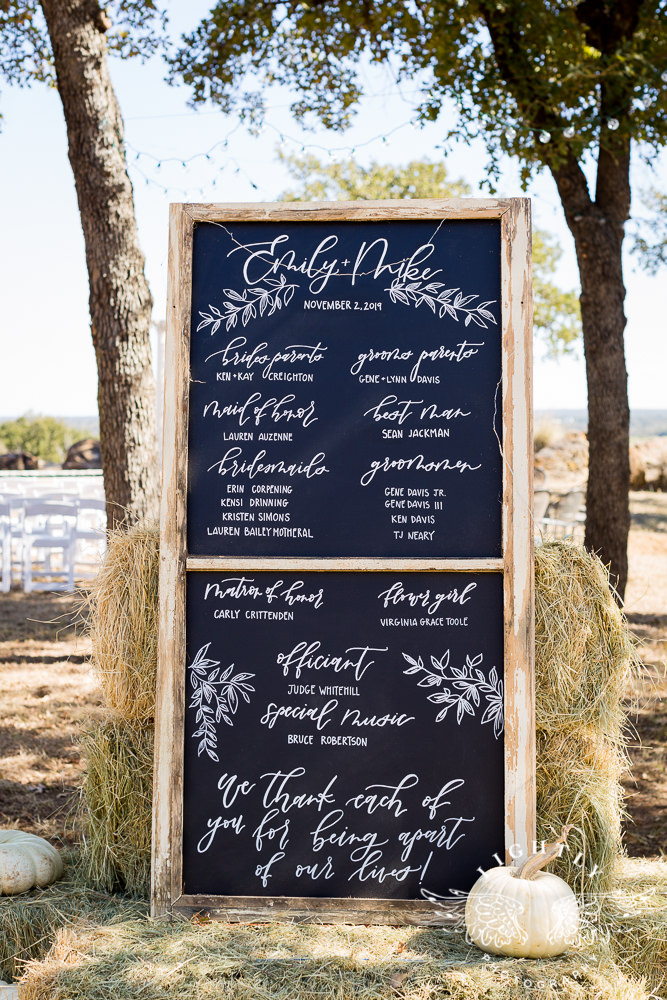 Emily + Mike
NOVEMBER 2, 2019
brides parents
KEN + KAY CREIGHTON
grooms parents
GENE + LYNN DAVIS
maid of honor
LAUREN AUZENNE
best man
SEAN JACKMAN
bridesmaids
ERIN CORPENING
KENSI DRINNING
KRISTEN SIMONS
LAUREN BAILEY MOTHERAL
groomsmen
GENE DAVIS JR.
GENE DAVIS III
KEN DAVIS
TJ NEARY
matron of honor
CARLY CRITTENDEN
flower girl
VIRGINIA GRACE TOOLE
officiant
JUDGE WHITEHILL
special music
BRUCE ROBERTSON
We thank each of
you for being apart
of our lives!
LIGHTLY
PHOTOGRAPHY